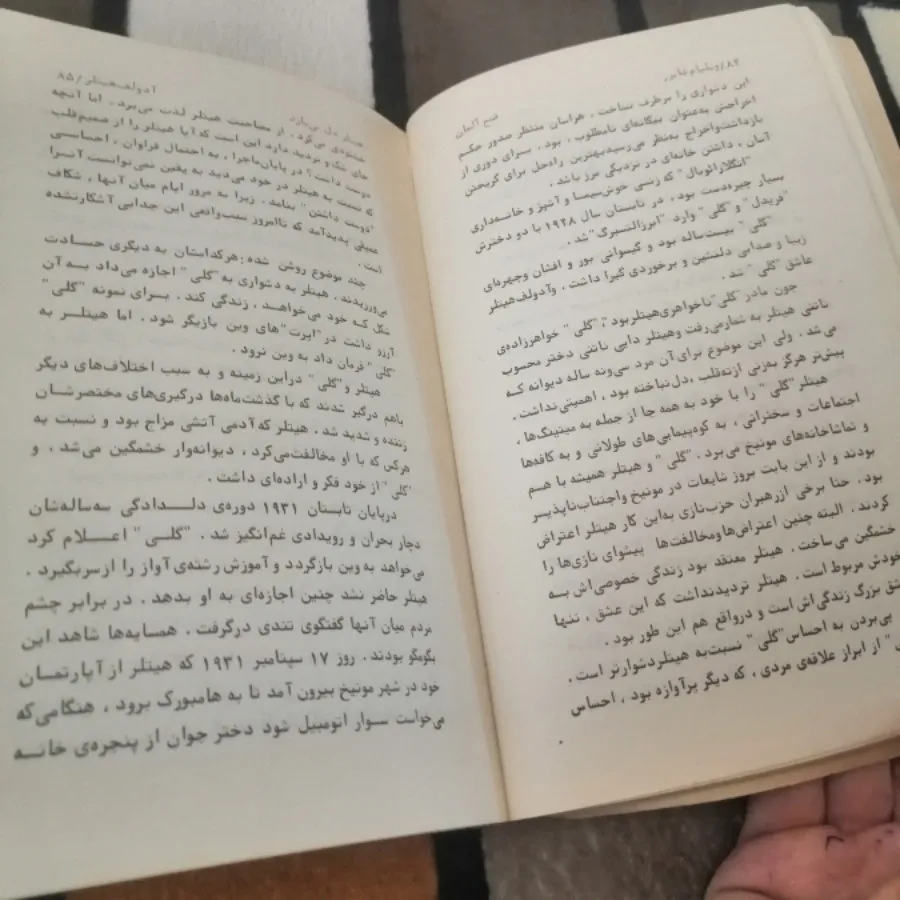 ۸۴/ویلیام شایرر
این دشواری را برطرف نساخت ، هراسان منتظر صدور حکم
اخراجش به‌عنوان بیگانه‌ای نامطلوب ، بود . برای دوری از
بازداشت‌واخراج به‌نظر می‌رسیدبهترین راه‌حل برای گریختن
آسان ، داشتن خانه‌ای در نزدیکی مرز باشد .
"انگلارائوبال" که زنی خوش‌سیما و آشپز و خانه‌داری
بسیار چیره‌دست بود ، در تابستان سال ۱۹۲۸ با دو دخترش
"فریدل" و "گلی" وارد "ابرزالتسبرگ" شد .
"گلی" بیست‌ساله بود و گیسوانی بور و افشان وچهره‌ای
زیبا و صدایی دلنشین و برخوردی گیرا داشت . وآدولف‌هیتلر
عاشق "گلی" شد .
چون مادر"گلی"ناخواهری‌هیتلربود "گلی" خواهرزاده‌ی
ناتنی هیتلر به شمارمی‌رفت وهیتلر دایی ناتنی دختر محسوب
می‌شد . ولی این موضوع برای آن مرد سی‌ونه ساله دیوانه کـه
پیش‌تر هرگز به‌زنی ازته‌قلب ،دل‌نباخته بود ، اهمیتی‌نداشت .
هیتلر "گلی" را با خود به همه جا از جمله به میتینگ‌ها ،
اجتماعات و سخنرانی ، به کوه‌پیمایی‌های طولانی و به کافه‌ها
و تماشاخانه‌های مونیخ می‌برد . "گلی" و هیتلر همیشه با هـم
بودند و از این بابت بروز شایعات در مونیخ واجتناب‌ناپذیـر
بود . حتا برخی ازرهبران حزب‌نازی به‌این کار هیتلر اعتراض
کردند . البته چنین اعتراض‌هاومخالفت‌ها پیشوای نازی‌ها را
خشمگین می‌ساخت . هیتلر معتقد بود زندگی خصوصی‌اش بـه
خودش مربوط است . هیتلر تردیدنداشت که این عشق ، تنهـا
عشق بزرگ زندگی‌اش است و درواقع هم این طور بود .
پی‌بردن به احساس"گلی" نسبت‌به هیتلردشوارتر است .
از ابراز علاقه‌ی مردی ، که دیگر پرآوازه بود ، احساس
آدولف‌هیتلر/۸۵
خشنودی می‌کرد . از مصاحبت هیتلر لذت می‌برد . اما آنچه
جای شک و تردید دارد این است که آیا هیتلر را از صمیم‌قلب
دوست داشت؟ در پایان‌ماجرا ، به احتمال فراوان ، احساسی
که نسبت به هیتلر در خود می‌دید به یقین نمی‌توانست آنـرا
"دوست داشتن" بنامد . زیرا به مرور ایام میان آنها ، شکاف
عمیقی پدیدآمد که تاامروز سبب‌واقعی این جدایی آشکارنشده
است .
چند موضوع روشن شده : هرکدامشان به دیگری حسادت
می‌ورزیدند . هیتلر به دشواری به "گلی" اجازه می‌داد به آن
شکل کـه خود می‌خواهـد ، زندگی کند . بـرای نمونه "گلی"
آرزو داشت در "اپرت"های وین بازیگر شود . اما هیتلـر به
"گلی" فرمان داد به وین نرود .
هیتلر و"گلی" دراین زمینه و به سبب اختلاف‌های دیگر
باهم درگیر شدند که با گذشت‌ماه‌ها درگیری‌های مختصرشان
زننده و شدید شد . هیتلر که‌آدمی آتشی مزاج بود و نسبت به
هرکس که با او مخالفت‌می‌کرد ، دیوانه‌وار خشمگین می‌شد ، و
"گلی" از خود فکر و اراده‌ای داشت .
درپایان تابستان ۱۹۳۱ دوره‌ی دلـدادگی سه‌ساله‌شان
دچار بحران و رویدادی غم‌انگیز شد . "گلـی" اعـلام کرد
می‌خواهد به وین بازگردد و آموزش رشته‌ی آواز را ازسربگیرد .
هیتلر حاضر نشد چنین اجازه‌ای به او بدهد . در برابر چشم
مردم میان آنها گفتگوی تندی درگرفت . همسایه‌ها شاهد این
بگومگو بودند . روز ۱۷ سپتامبر ۱۹۳۱ که هیتلر از آپارتمـان
خود در شهر مونیخ بیرون آمد تا به هامبورک برود ، هنگامی‌که
می‌خواست سـوار اتومبیل شود دختر جوان از پنجره‌ی خانـه